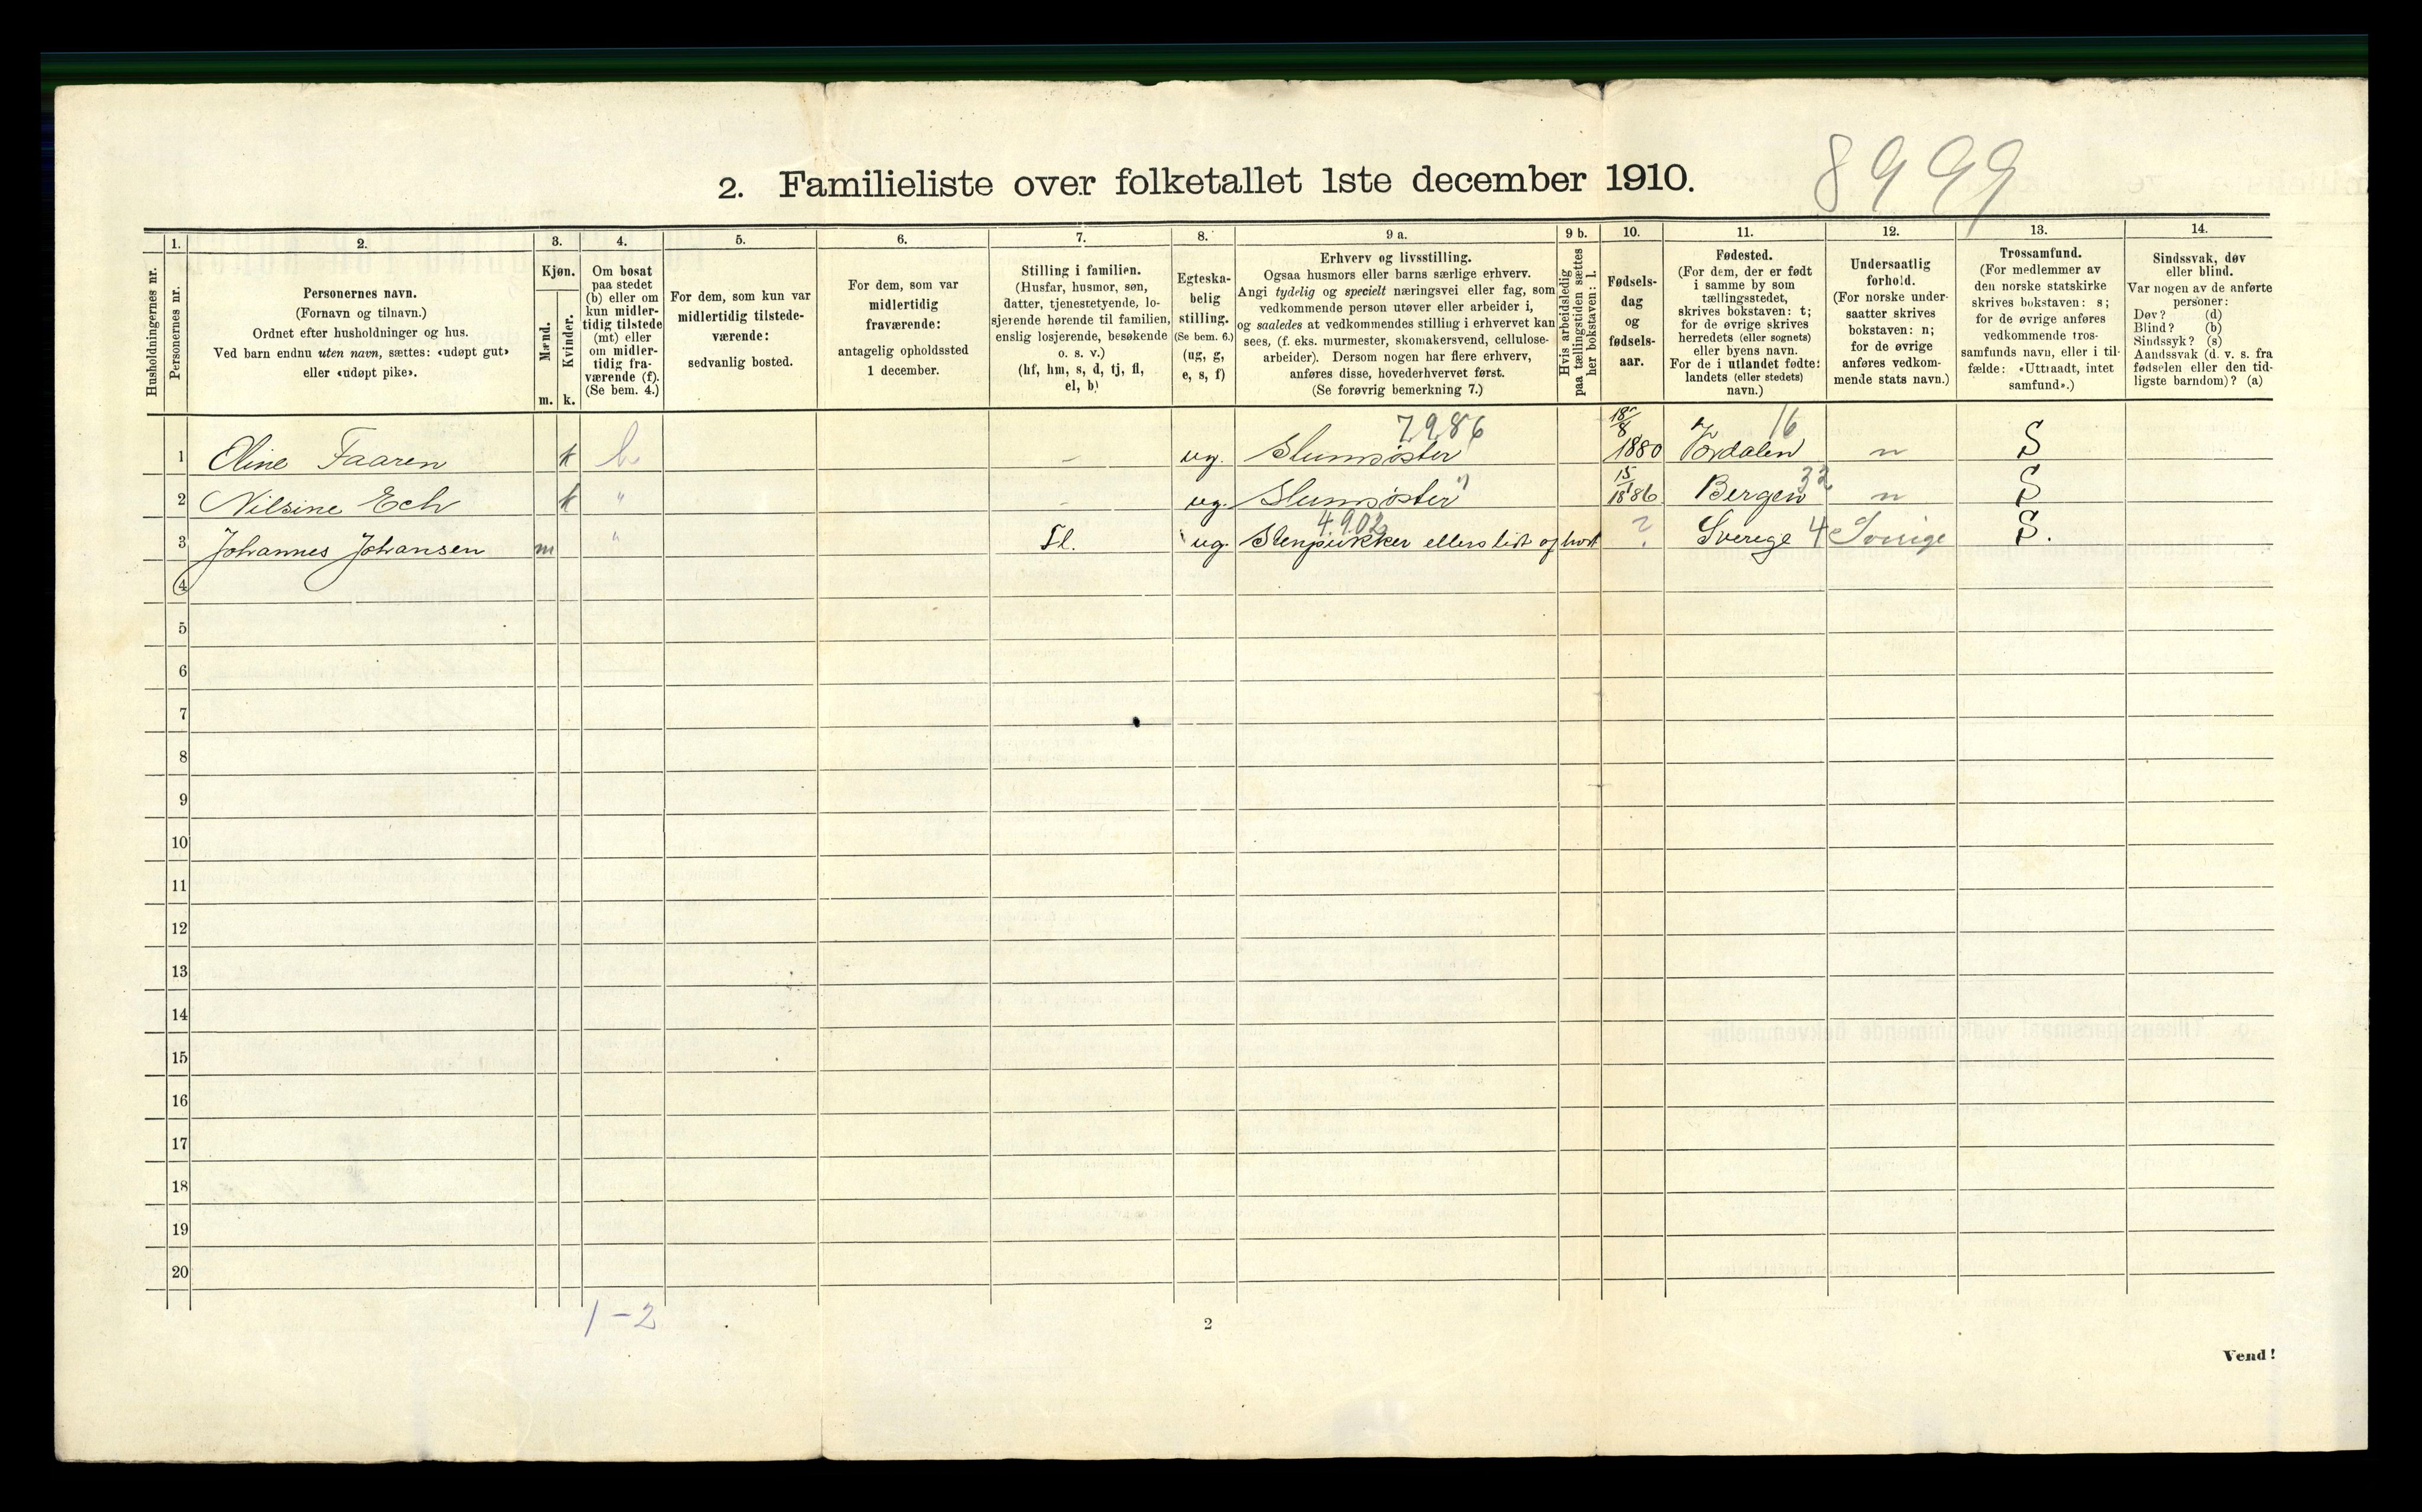 8999
2. Familieliste over folketallet 1ste december 1910.
Husholdningernes nr.
1. Personernes nr.
2. Personernes navn. (Fornavn og tilnavn.) Ordnet efter husholdninger og hus. Ved barn endnu uten navn, sættes: «udøpt gut» eller «udøpt pike».
3. Kjøn. Mænd. m. Kvinder. k.
4. Om bosat paa stedet (b) eller om kun midler-tidig tilstede (mt) eller om midler-tidig fra-værende (f). (Se bem. 4.)
5. For dem, som kun var midlertidig tilstede-værende: sedvanlig bosted.
6. For dem, som var midlertidig fraværende: antagelig opholdssted 1 december.
7. Stilling i familien. (Husfar, husmor, søn, datter, tjenestetyende, lo-sjerende hørende til familien, enslig losjerende, besøkende o. s. v.) (hf, hm, s, d, tj, fl, el, b)
8. Egteska-belig stilling. (Se bem. 6.) (ug, g, e, s, f)
9 a. Erhverv og livsstilling. Ogsaa husmors eller barns særlige erhverv. Angi tydelig og specielt næringsvei eller fag, som vedkommende person utøver eller arbeider i, og saaledes at vedkommendes stilling i erhvervet kan sees, (f. eks. murmester, skomakersvend, cellulose-arbeider). Dersom nogen har flere erhverv, anføres disse, hovederhvervet først. (Se forøvrig bemerkning 7.)
9 b. Hvis arbeidsledig paa tællingstiden sættes her bokstaven: l.
10. Fødsels-dag og fødsels-aar.
11. Fødested. (For dem, der er født i samme by som tællingsstedet, skrives bokstaven: t; for de øvrige skrives herredets (eller sognets) eller byens navn. For de i utlandet fødte: landets (eller stedets) navn.)
12. Undersaatlig forhold. (For norske under-saatter skrives bokstaven: n; for de øvrige anføres vedkom-mende stats navn.)
13. Trossamfund. (For medlemmer av den norske statskirke skrives bokstaven: s; for de øvrige anføres vedkommende tros-samfunds navn, eller i til-fælde: «Uttraadt, intet samfund».)
14. Sindssvak, døv eller blind. Var nogen av de anførte personer: Døv? (d) Blind? (b) Sindssyk? (s) Aandssvak (d. v. s. fra fødselen eller den tid-ligste barndom)? (a)
1 Eline Faaren k b – ug. Slumsøster 7986 18/8 1880 Værdalen 16 n S
2 Nilsine Ech k " – ug. Slumsøster " 15/1 1886 Bergen 32 n S
3 Johannes Johansen m " Fl. ug. Stenpukker ellers lidt af hvert 4902 ? Sverige 4 Sverige S.
4
5
6
7
8
9
10
11
12
13
14
15
16
17
18
19
20
1-2
2
Vend!